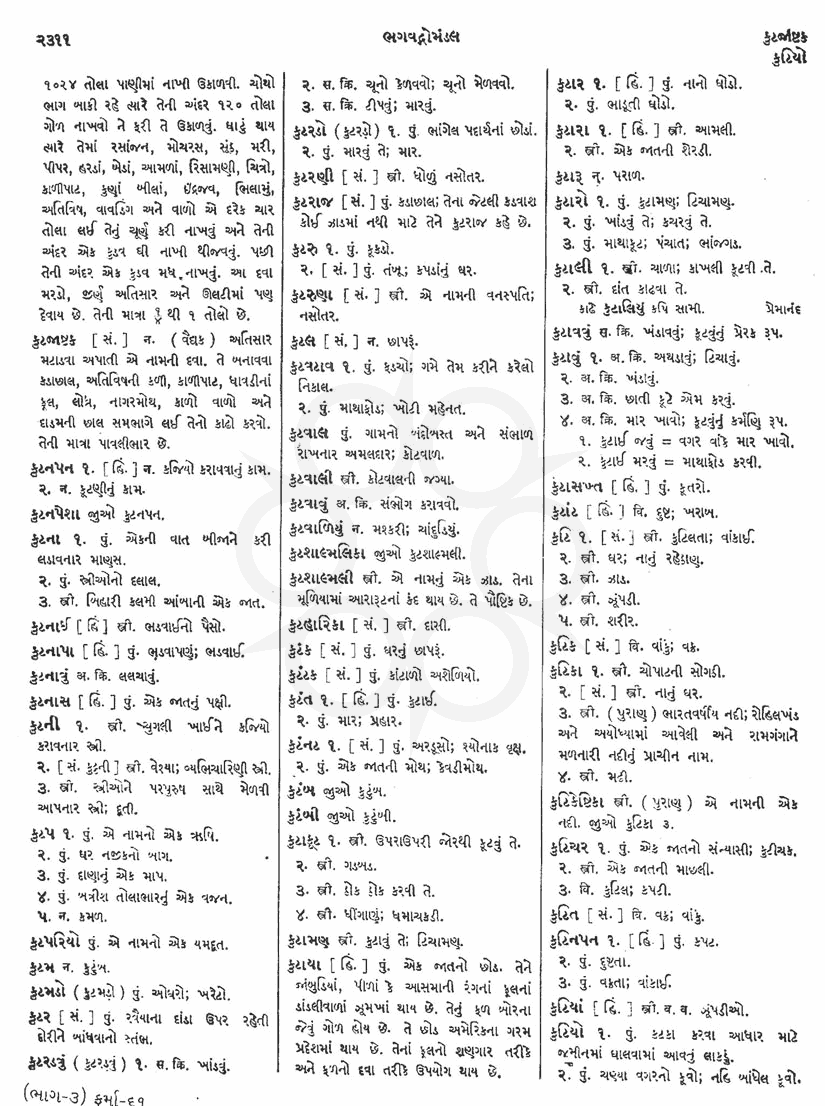 ૨૩૧૧
ભગવદ્ગોમંડલ
કુટજાષ્ટક
કુટિયો
૧૦૨૪ તોલા પાણીમાં નાખી ઉકાળવી. ચોથો
ભાગ બાકી રહે ત્યારે તેની અંદર ૧૨૦ તોલા
ગોળ નાખવો ને ફરી તે ઉકાળવું. ઘાટું થાય
ત્યારે તેમાં રસાંજન, મોચરસ, સુંઠ, મરી,
પીપર, હરડાં, બેડાં, આમળાં, રિસામણી, ચિત્રો,
કાળીપાટ, કુણાં બીલાં, ઇંદ્રજવ, ભિલામું,
અતિવિષ, વાવડિંગ અને વાળો એ દરેક ચાર
તોલા લઈ તેનું ચૂર્ણ કરી નાખવું અને તેની
અંદર એક કુડવ ઘી નાખી થીજવવું. પછી
તેની અંદર એક કુડવ મધ નાખવું. આ દવા
મરડો, જીર્ણ અતિસાર અને ઊલટીમાં પણ
દેવાય છે. તેની માત્રા થી ૧ તોલો છે.
કુટજાષ્ટક [ સં. ] ન. ( વૈદ્યક ) અતિસાર
મટાડવા અપાતી એ નામની દવા. તે બનાવવા
કડાછાલ, અતિવિષની કળી, કાળીપાટ, ધાવડીનાં
ફૂલ, લોધ્ર, નાગરમોથ, કાળો વાળો અને
દાડમની છાલ સમભાગે લઈ તેનો કાઢો કરવો.
તેની માત્રા પાવલીભાર છે.
કુટનપન ૧. [ હિં. ] ન. કજિયો કરાવવાનું કામ.
૨. ન. કૂટણીનું કામ.
કુટનપેશા જુઓ કુટનપન.
કુટના ૧. પું. એકની વાત બીજાને કરી
લડાવનાર માણસ.
૨. પું. સ્ત્રીઓનો દલાલ.
૩. સ્ત્રી. બિહારી કલમી આંબાની એક જાત.
કુટનાઈ [ હિં ] સ્ત્રી. ભડવાઈનો પૈસો.
કુટનાપા [ હિં. ] પું. ભડવાપણું; ભડવાઈ.
કુટનાવું અ. ક્રિ. લલચાવું.
કુટનાસ [ હિં. ] પું. એક જાતનું પક્ષી.
કુટની ૧. સ્ત્રી. ચુગલી ખાઈને કજિયો
કરાવનાર સ્ત્રી.
૨. [ સં. કુટ્ટની ] સ્ત્રી. વેશ્યા; વ્યભિચારિણી સ્ત્રી.
૩. સ્ત્રી. સ્ત્રીઓને પરપુરુષ સાથે મેળવી
આપનાર સ્ત્રી; દૂતી.
કુટપ ૧. પું. એ નામનો એક ઋષિ.
૨. પું. ઘર નજીકનો બાગ.
૩. પું. દાણાનું એક માપ.
૪. પું. બત્રીશ તોલાભારનું એક વજન.
૫. ન. કમળ.
કુટપરિયો પું. એ નામનો એક યમદૂત.
કુટમ ન. કુટુંબ.
કુટમડો ( કુટમડ઼ો ) પું. ઓધરો; ખરેટો.
કુટર [ સં. ] પું. રવૈયાના દાંડા ઉપર રહેતી
દોરીને બાંધવાનો સ્તંભ.
કુટરડવું ( કુટરડ઼વું ) ૧. સ. ક્રિ. ખાંડવું.
(ભાગ-૩) ફર્મા-૬૧
૨. સ. ક્રિ. ચૂનો કેળવવો; ચૂનો મેળવવો.
૩. સ. ક્રિ. ટીપવું; મારવું.
કુટરડો ( કુટરડ઼ો ) ૧. પું. ભાંગેલ પદાર્થનાં છોડાં.
૨. પું. મારવું તે; માર.
કુટરણી [ સં. ] સ્ત્રી. ધોળું નસોતર.
કુટરાજ [ સં. ] પું. કડાછાલ; તેના જેટલી કડવાશ
કોઈ ઝાડમાં નથી માટે તેને કુટરાજ કહે છે.
કુટરુ ૧. પું. કૂકડો.
૨. [ સં. ] પું. તંબૂ; કપડાંનું ઘર.
કુટરુણા [ સં. ] સ્ત્રી. એ નામની વનસ્પતિ;
નસોતર.
કુટલ [ સં. ] ન. છાપરૂં.
કુટવટાવ ૧. પું. ફડચો; ગમે તેમ કરીને કરેલો
નિકાલ.
૨. પું. માથાફોડ; ખોટી મહેનત.
કુટવાલ પું. ગામનો બંદોબસ્ત અને સંભાળ
રાખનાર અમલદાર; કોટવાળ.
કુટવાલી સ્ત્રી. કોટવાલની જગ્યા.
કુટવાવું અ. ક્રિ. સંભોગ કરાવવો.
કુટવાળિયું ન. મશ્કરી; ચાંદુડિયું.
કુટશાલ્મલિકા જુઓ કુટશાલ્મલી.
કુટશાલ્મલી સ્ત્રી. એ નામનું એક ઝાડ. તેના
મૂળિયામાં આરારૂટનાં કંદ થાય છે. તે પૌષ્ટિક છે.
કુટહારિકા [ સં. ] સ્ત્રી. દાસી.
કુટંક [ સં. ] પું. ઘરનું છાપરૂં.
કુટંટક [ સં. ] પું. કાંટાળો અશેળિયો.
કુટંત ૧. [ હિં. ] પું. કુટાઈ.
૨. પું. માર; પ્રહાર.
કુટંનટ ૧. [ સં. ] પું. અરડૂસો; શ્યોનાક વૃક્ષ.
૨. પું. એક જાતની મોથ; કેવડીમોથ.
કુટંબ જુઓ કુટુંબ.
કુટંબી જુઓ કુટુંબી.
કુટાકૂટ ૧. સ્ત્રી. ઉપરાઉપરી જોરથી કૂટવું તે.
૨. સ્ત્રી. ગડબડ.
૩. સ્ત્રી. ઠોક ઠોક કરવી તે.
૪. સ્ત્રી. ધીંગાણું; ધમાચકડી.
કુટામણ સ્ત્રી. કુટાવું તે; ટિચામણ.
કુટાયા [ હિં. ] પું. એક જાતનો છોડ. તેને
જાંબુડિયાં, પીળાં કે આસમાની રંગનાં ફૂલનાં
ડાંડલીવાળાં ઝૂમખાં થાય છે. તેનું ફળ બોરના
જેવું ગોળ હોય છે. તે છોડ અમેરિકના ગરમ
પ્રદેશમાં થાય છે. તેનાં ફૂલનો શણગાર તરીકે
અને ફળનો દવા તરીકે ઉપયોગ થાય છે.
કુટાર ૧. [ હિં. ] પું. નાનો ઘોડો.
૨. પું. ભાડૂતી ઘોડો.
કુટારા ૧. [ હિં. ] સ્ત્રી. આમલી.
૨. સ્ત્રી. એક જાતની શેરડી.
કુટારૂ ન. પરાળ.
કુટારો ૧. પું. કુટામણ; ટિચામણ.
૨. પું. ખાંડવું તે; કચરવું તે.
૩. પું. માથાકૂટ; પંચાત; ભાંજગડ.
કુટાલી ૧. સ્ત્રી. ચાળા; કાખલી કૂટવી તે.
૨. સ્ત્રી. દાંત કાઢવા તે.
કાઢે કુટાલિયું કપિ સામી. પ્રેમાનંદ
કુટાવવું સ. ક્રિ. ખંડાવવું; કૂટવુંનું પ્રેરક રૂપ.
કુટાવું ૧. અ. ક્રિ. અથડાવું; ટિચાવું.
૨. અ. ક્રિ. ખંડાવું.
૩. અ. ક્રિ. છાતી કૂટે એમ કરવું.
૪. અ. ક્રિ. માર ખાવો; કૂટવુંનું કર્મણિ રૂપ.
૧. કુટાઈ જવું = વગર વાંકે માર ખાવો.
૨. કુટાઈ મરવું = માથાફોડ કરવી.
કુટાસખ્ત [ હિં. ] પું. કૂતરો.
કુટાંટ [ હિં. ] વિ. દુષ્ટ; ખરાબ.
કુટિ ૧. [ સં. ] સ્ત્રી. કુટિલતા; વાંકાઈ.
૨. સ્ત્રી. ઘર; નાનું રહેઠાણ.
૩. સ્ત્રી. ઝાડ.
૪. સ્ત્રી. ઝૂંપડી.
૫. સ્ત્રી. શરીર.
કુટિક [ સં. ] વિ. વાંકું; વક્ર.
કુટિકા ૧. સ્ત્રી. ચોપાટની સોગઠી.
૨. [ સં. ] સ્ત્રી. નાનું ઘર.
૩. સ્ત્રી. ( પુરાણ ) ભારતવર્ષીય નદી; રોહિલખંડ
અને અયોધ્યામાં આવેલી અને રામગંગાને
મળનારી નદીનું પ્રાચીન નામ.
૪. સ્ત્રી. મઢી.
કુટિકેષ્ટિકા સ્ત્રી. ( પુરાણ ) એ નામની એક
નદી. જુઓ કુટિકા ૩.
કુટિચર ૧. પું. એક જાતનો સંન્યાસી; કુટીચક.
૨. સ્ત્રી. એક જાતની માછલી.
૩. વિ. કુટિલ; કપટી.
કુટિત [ સં. ] વિ. વક્ર; વાંકું.
કુટિનપન ૧. [ હિં. ] પું. કપટ.
૨. પું. દુષ્ટતા.
૩. પું. વક્રતા; વાંકાઈ.
કુટિયાં [ હિં. ] સ્ત્રી. બ. વ. ઝૂંપડીઓ.
કુટિયો ૧. પું. કટકા કરવા આધાર માટે
જમીનમાં ઘાલવામાં આવતું લાકડું.
૨. પું. ચણ્યા વગરનો કૂવો; નહિ બાંધેલ કૂવો.